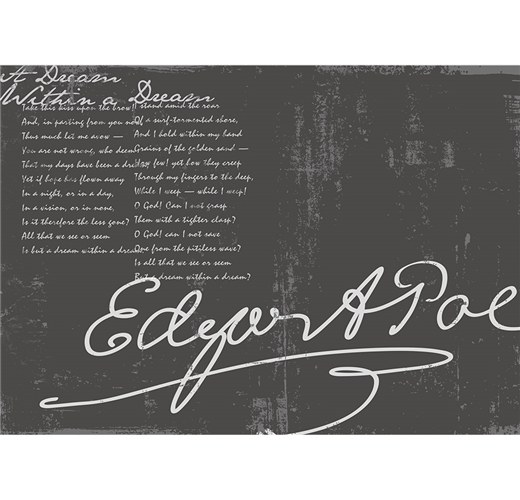 A Dream
Within a Dream
Take this kiss upon the brow!
And, in parting from you now,
Thus much let me avow —
You are not wrong, who deem
That my days have been a dream
Yet if hope has flown away
In a night, or in a day,
In a vision, or in none,
Is it therefore the less gone?
All that we see or seem
Is but a dream within a dream
I stand amid the roar
Of a surf-tormented shore,
And I hold within my hand
Grains of the golden sand —
How few! yet how they creep
Through my fingers to the deep,
While I weep — while I weep!
O God! Can I not grasp
Them with a tighter clasp?
O God! can I not save
One from the pitiless wave?
Is all that we see or seem
But a dream within a dream?
Edgar A Poe